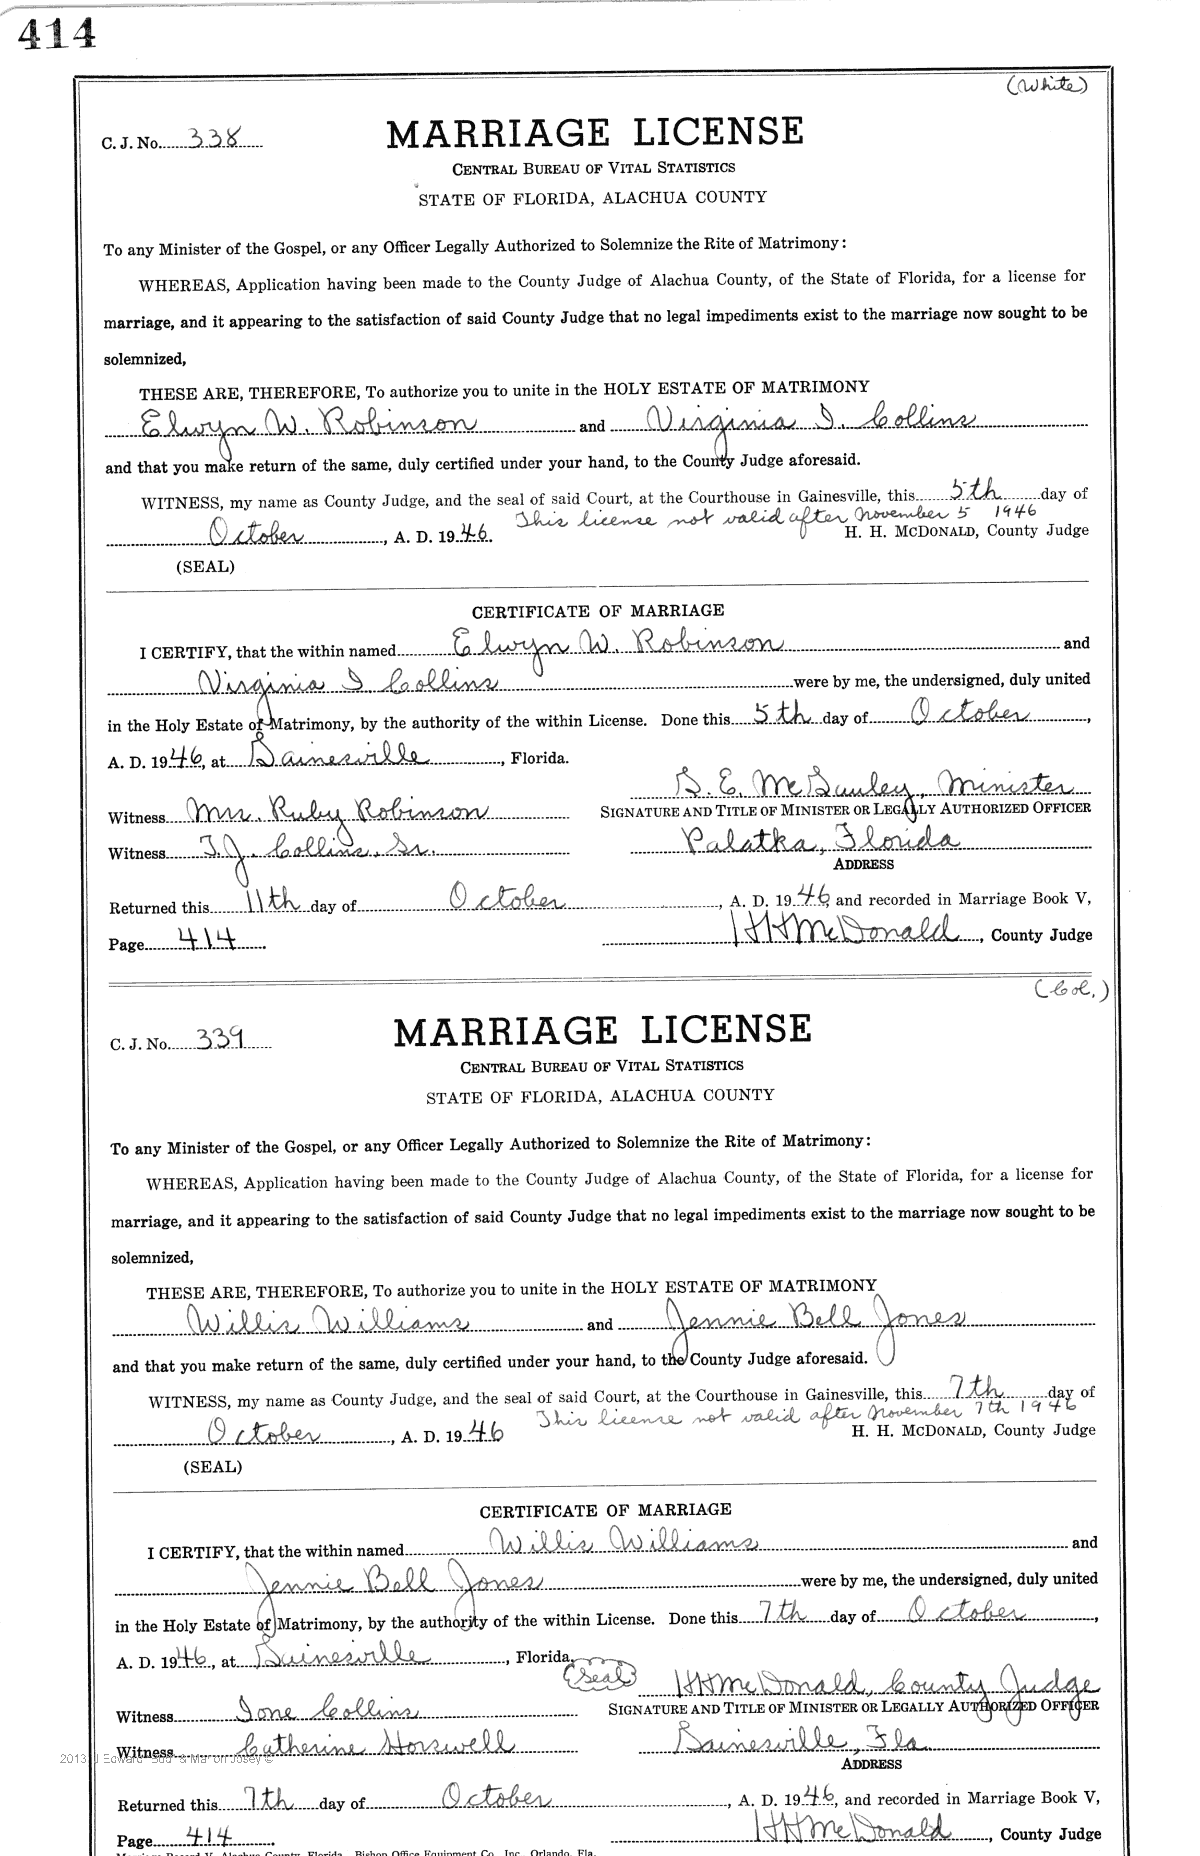 414
(White)
C. J. No. 338
MARRIAGE LICENSE
CENTRAL BUREAU OF VITAL STATISTICS
STATE OF FLORIDA, ALACHUA COUNTY
To any Minister of the Gospel, or any Officer Legally Authorized to Solemnize the Rite of Matrimony:
WHEREAS, Application having been made to the County Judge of Alachua County, of the State of Florida, for a license for
marriage, and it appearing to the satisfaction of said County Judge that no legal impediments exist to the marriage now sought to be
solemnized,
THESE ARE, THEREFORE, To authorize you to unite in the HOLY ESTATE OF MATRIMONY
Elwyn W. Robinson and Virginia I. Collins
and that you make return of the same, duly certified under your hand, to the County Judge aforesaid.
WITNESS, my name as County Judge, and the seal of said Court, at the Courthouse in Gainesville, this 5th day of
This license not valid after November 5 1946
October, A. D. 1946. H. H. MCDONALD, County Judge
(SEAL)
CERTIFICATE OF MARRIAGE
I CERTIFY, that the within named Elwyn W. Robinson and
Virginia I Collins were by me, the undersigned, duly united
in the Holy Estate of Matrimony, by the authority of the within License. Done this 5th day of October,
A. D. 1946, at Gainesville, Florida.
G. E. McGauley, Minister
Witness Mrs. Ruby Robinson SIGNATURE AND TITLE OF MINISTER OR LEGALLY AUTHORIZED OFFICER
Witness T. J. Collins, Sr. Palatka, Florida
ADDRESS
Returned this 11th day of October, A. D. 1946 and recorded in Marriage Book V,
Page 414 HHMcDonald, County Judge
(Col.)
C. J. No. 339
MARRIAGE LICENSE
CENTRAL BUREAU OF VITAL STATISTICS
STATE OF FLORIDA, ALACHUA COUNTY
To any Minister of the Gospel, or any Officer Legally Authorized to Solemnize the Rite of Matrimony:
WHEREAS, Application having been made to the County Judge of Alachua County, of the State of Florida, for a license for
marriage, and it appearing to the satisfaction of said County Judge that no legal impediments exist to the marriage now sought to be
solemnized,
THESE ARE, THEREFORE, To authorize you to unite in the HOLY ESTATE OF MATRIMONY
Willis Williams and Jennie Bell Jones
and that you make return of the same, duly certified under your hand, to the County Judge aforesaid.
WITNESS, my name as County Judge, and the seal of said Court, at the Courthouse in Gainesville, this 7th day of
This license not valid after November 7th 1946
October, A. D. 1946 H. H. MCDONALD, County Judge
(SEAL)
CERTIFICATE OF MARRIAGE
I CERTIFY, that the within named Willis Williams and
Jennie Bell Jones were by me, the undersigned, duly united
in the Holy Estate of Matrimony, by the authority of the within License. Done this 7th day of October,
A. D. 1946, at Gainesville, Florida.
(Seal) HHMcDonald, County Judge
Witness Ione Collins SIGNATURE AND TITLE OF MINISTER OR LEGALLY AUTHORIZED OFFICER
Witness Catherine Horswell Gainesville, Fla
ADDRESS
Returned this 7th day of October, A. D. 1946, and recorded in Marriage Book V,
Page 414 HHMcDonald, County Judge
Marriage Record V, Alachua County, Florida. Bishop Office Equipment Co., Inc., Orlando, Fla.